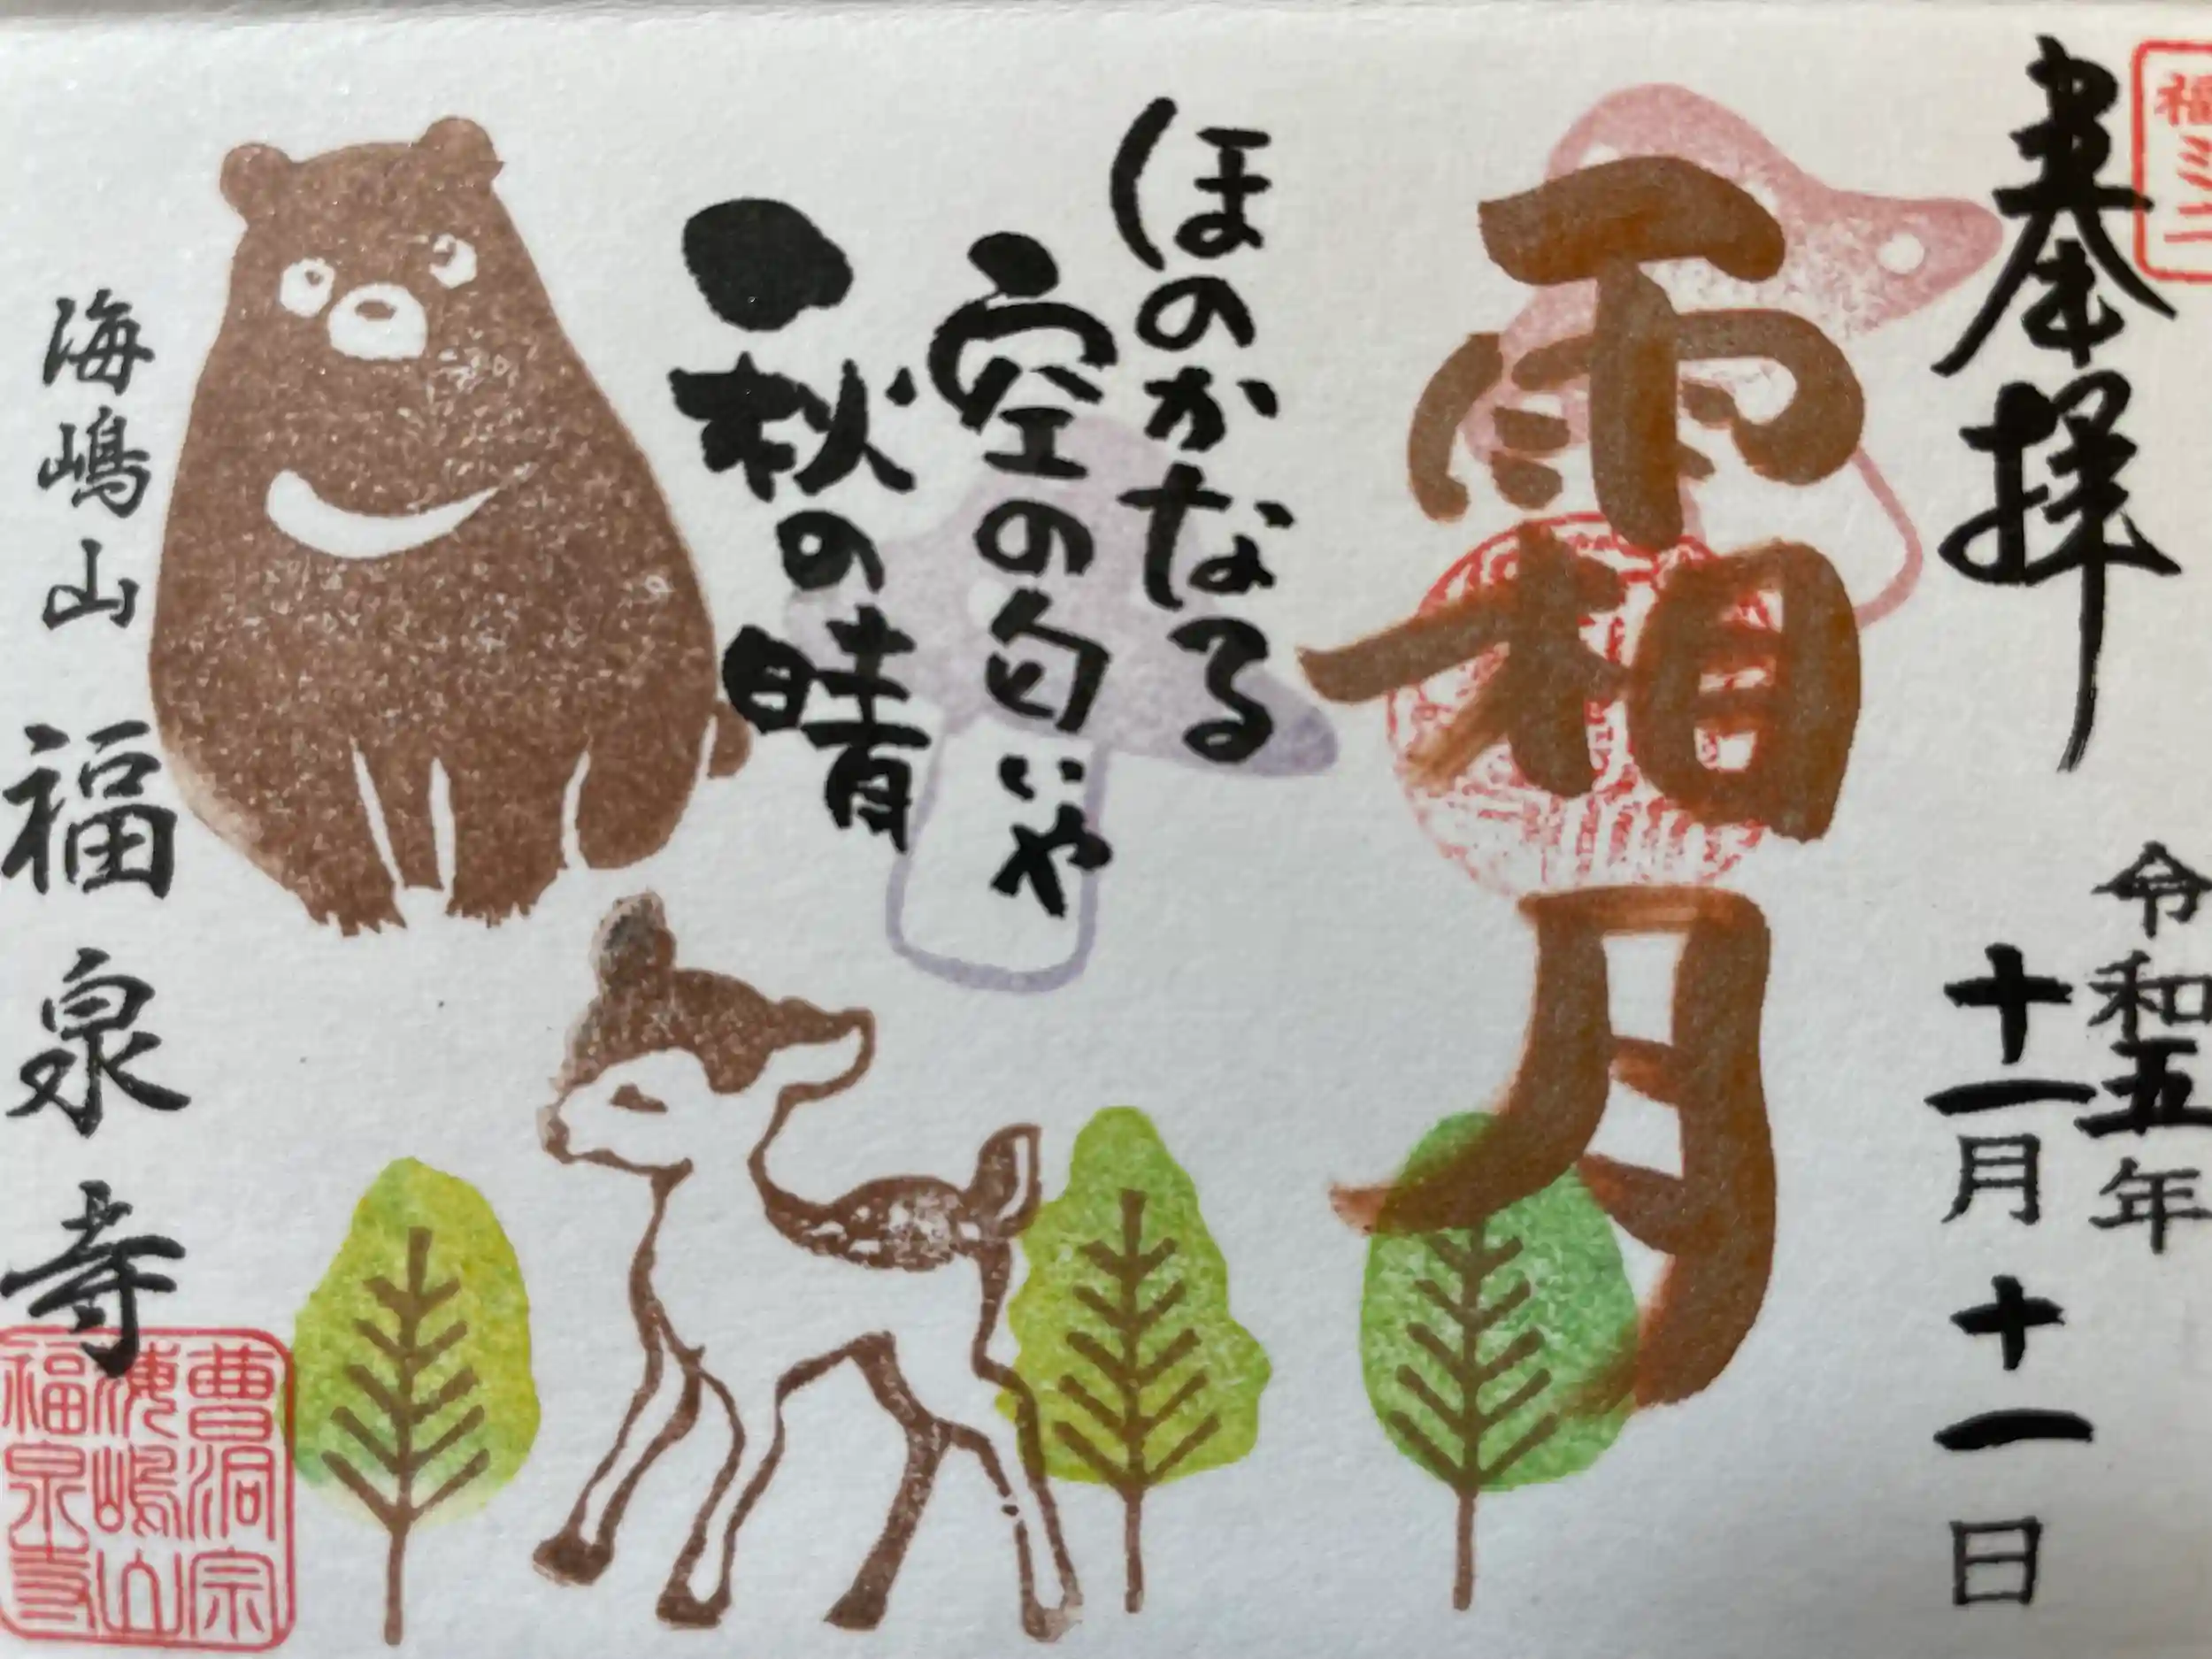 福ミニ
奉拝
令和五年
十一月十一日
霜月
ほのかなる
空の匂いや
秋の晴
海嶋山 福泉寺
曹洞宗
海嶋山
福泉寺